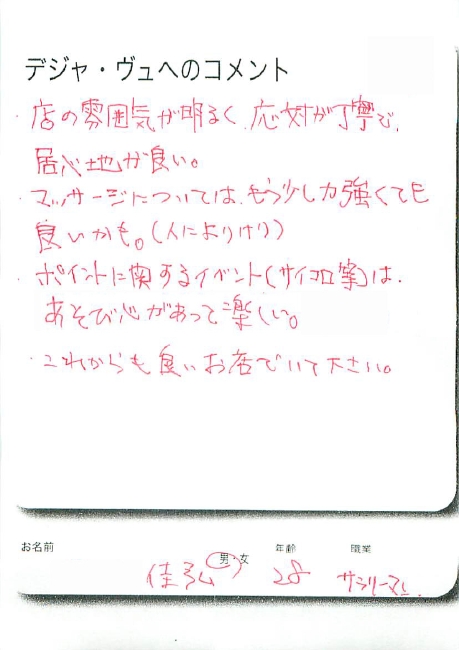 デジャ・ヴュへのコメント
・店の雰囲気が明るく、応対が丁寧で、
居心地が良い。
・マッサージについては、もう少し力強くても
良いかも。(人によりけり)
・ポイントに関するイベント(サイコロ等)は、
あそび心があって楽しい。
・これからも良いお店でいて下さい。
お名前 男・女 年齢 職業
佳弘 28 サラリーマン